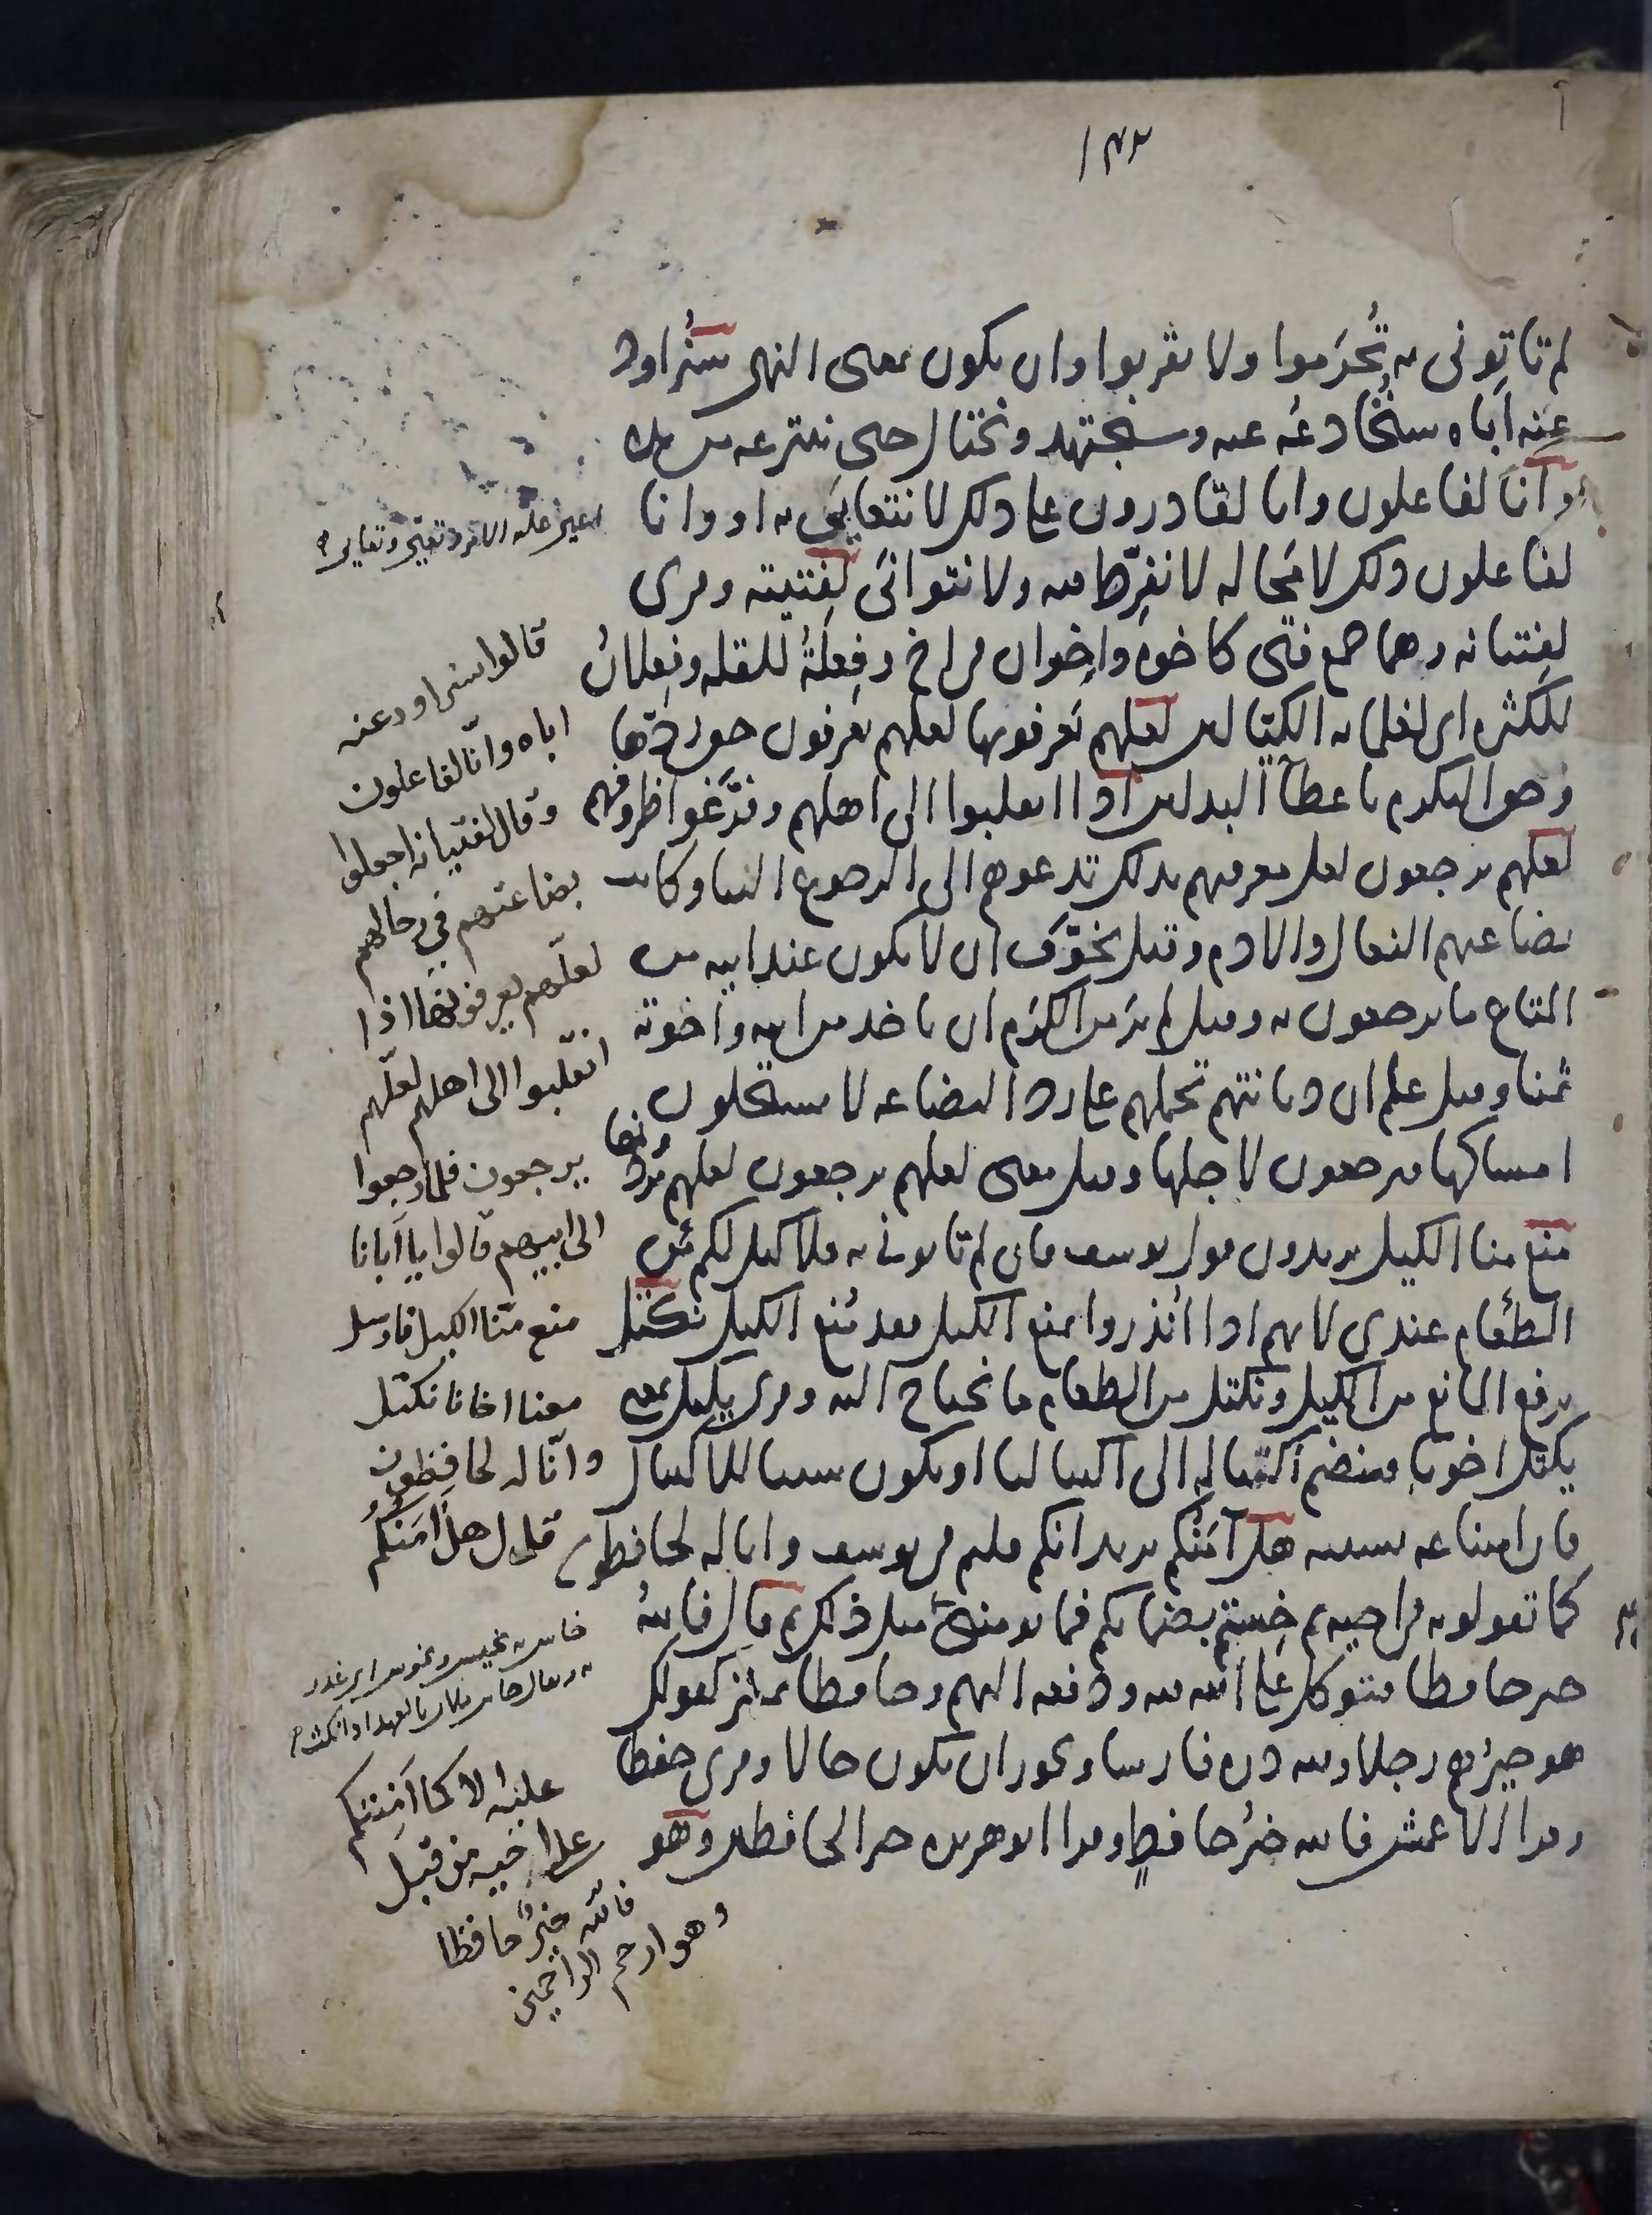 ١٣٢
لم تاتونى به تُحرَموا ولا تقربوا وان يكون بمعنى النهى سنُراود
عنه اباه سنُخادعُه عنه وسنجتهد ونحتال حتى ننتزعه من يده
وانا لفاعلون وانا لقادرون على ذلك لا نتعايَى به او وانا
لفاعلون ذلك لا مَحاله لا نفرِّط فيه ولا نتوانَى لفتيته وقرى
لفتيانه وهما جمع فتى كاخوة واخوان فى اخ وفِعلةُ للقله وفِعلانُ
للكثره اى لغلمانه الكيّالين لعلهم يَعرفونها لعلهم يعرفون حق ردّها
وحق التكرم باعطآ البدلين اذا انقلبوا الى اهلهم وفرَّغوا ظروفهم
لعلهم يرجعون لعل معرفتهم بذلك تدعوهم الى الرجوع الينا وكانت
بضاعتهم النعال والادم وقيل تخوَّف ان لا يكون عند ابيه من
المتاع ما يرجعون به وقيل لم يَر من الكرَم ان ياخذ من ابيه واخوته
ثمنا وقيل علم ان ديانتهم تحملهم على رد البضاعه لا يستحلون
امساكها فيرجعون لاجلها وقيل معنى لعلهم يرجعون لعلهم يَردّونها
مُنع منا الكيل يريدون قول يوسف فان لم تاتونى به فلا كيل لكم عندى
الطعام عندى لانهم اذا اُنذروا بمنع الكيل فقد مُنع الكيل نكتل
نرفع المانع من الكيل ونكتل من الطعام ما نحتاج اليه وقرى يكتل بمعنى
يكتل اخونا فينضم اكتياله الى اكتيالنا او يكون سببا للاكتيال
فان امتناعه بسببه هل آمَنُكم يريد انكم قلتم فى يوسف وانا له لحافظون
كما تقولونه فى اخيه ثم خِستم بضمانكم فما يؤمننى من مثل ذلك ثم قال فاللهُ
خير حافظا فتوكل على الله فيه ودفعه اليهم وحافظا تمييز كقولك
هو خيرُهم رجلا ولله دره فارسا ويجوز ان يكون حالا وقرى حفظا
وقرا الاعمش فالله خيرُ حافظٍ وقرا ابو هريره خير الحافظين وهو
قالوا سنراود عنه
اباه وانّا لفاعلون
وقال لفتيانه اجعلوا
بضاعتهم في رحالهم
لعلّهم يعرفونها اذا
انقلبوا الى اهلهم لعلّهم
يرجعون فلما رجعوا
الى ابيهم قالوا يا ابانا
منع منّا الكيل فارسل
معنا اخانا نكتل
وانّا له لحافظون
قال هل امَنُكُم
عليه الا كما اَمِنتكم
على اخيه من قبل
فاللّه خيرٌ حافظا
وهو ارحم الراحمين